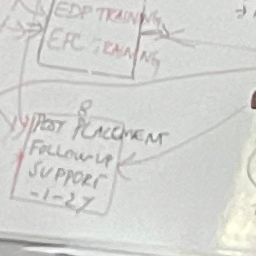 EDP TRAINING
EFC TRAINING
8
POST PLACEMENT
FOLLOW-UP
SUPPORT
-1-27